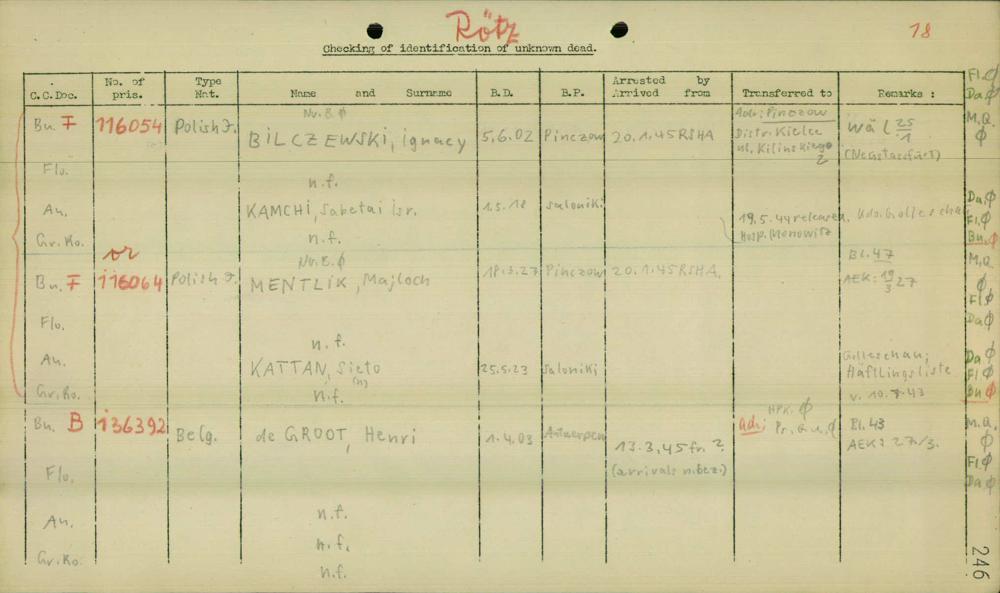 Rötz
78
Checking of identification of unknown dead.
C.C.Doc. No. of pris. Type Nat. Name and Surname B.D. B.P. Arrested by Arrived from Transferred to Remarks :
Fl. Ø
Da Ø
Nr.B. Ø
Bu. F 116054 Polish J. BILCZEWSKI, ignacy 5.6.02 Pinczow 20.1.45 RSHA
Adr: Pinczow
Distr. Kielce
ul. Kilinskiego
2
Wäl 25/1
(Neustassfurt)
M.Q.
Ø
Flo.
n.f.
Au. KAMCHI, Sabetai isr. 1.5.18 Saloniki
19.5.44 released
Hosp. Monowitz
Da. Ø
Fl. Ø
Bu. Ø
Gr.Ro. n.f.
or
Nr.B. Ø
Bu. F 116064 Polish J. MENTLIK, Majloch 18.3.27 Pinczow 20.1.45 RSHA.
Bl. 47
AEK: 19/3 27
M.Q.
Ø
Fl Ø
Da Ø
Flo.
n.f.
Au. KATTAN, Sieto 25.5.23 Saloniki
Häftlingsliste
v. 10.7.43
Da Ø
Fl Ø
Bu Ø
Gr.Ro. n.f.
Bu. B 136392 Belg. de GROOT, Henri 1.4.03 Antwerpen
13.3.45 fr ?
(arrivals n.bez.)
HPK. Ø
adr: Pr.Q.u. Ø
Bl. 43
AEK: 27/3.
M.Q.
Ø
Fl Ø
Da Ø
Flo.
Au. n.f.
n.f.
Gr.Ro.
n.f.
246